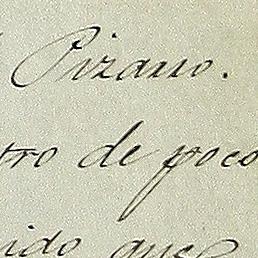 Pizano.
tro de poco
nido que